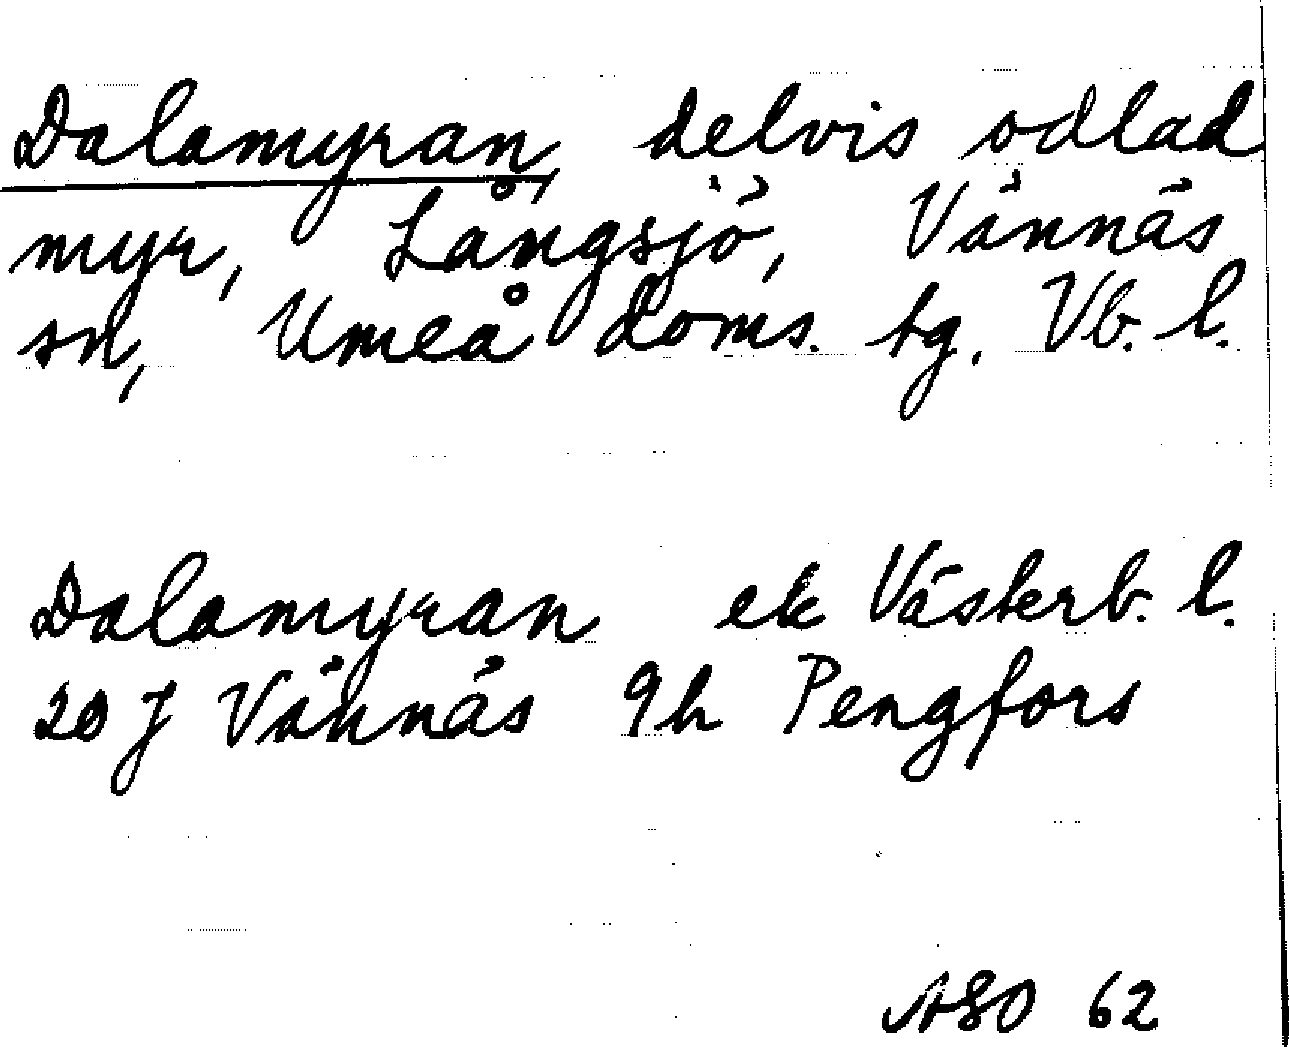 Dalamyran, delvis odlad
myr, Långsjö, Vännäs
sn, Umeå doms. tg. Vb. l.
Dalamyran ek Västerb. l.
20 J Vännäs 9h Pengfors
ASO 62